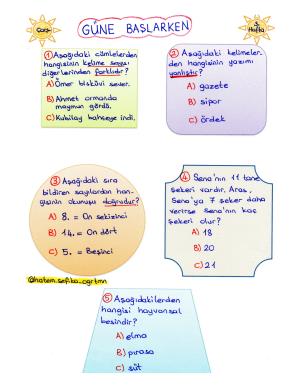 GÜNE BAŞLARKEN
5. Hafta
① Aşağıdaki cümlelerden
hangisinin kelime sayısı
diğerlerinden farklıdır?
A) Ömer bisküvi sever.
B) Ahmet ormanda
maymun gördü.
C) Kubilay bahçeye indi.
② Aşağıdaki kelimeler-
den hangisinin yazımı
yanlıştır?
A) gazete
B) sipor
C) ördek
③ Aşağıdaki sıra
bildiren sayılardan han-
gisinin okunuşu doğrudur?
A) 8. = On sekizinci
B) 14. = On dört
C) 5. = Beşinci
④ Sena'nın 11 tane
şekeri vardır. Aras,
Sena'ya 7 şeker daha
verirse Sena'nın kaç
şekeri olur?
A) 18
B) 20
C) 21
@hatem.sefika_ogrtmn
⑤ Aşağıdakilerden
hangisi hayvansal
besindir?
A) elma
B) pırasa
C) süt